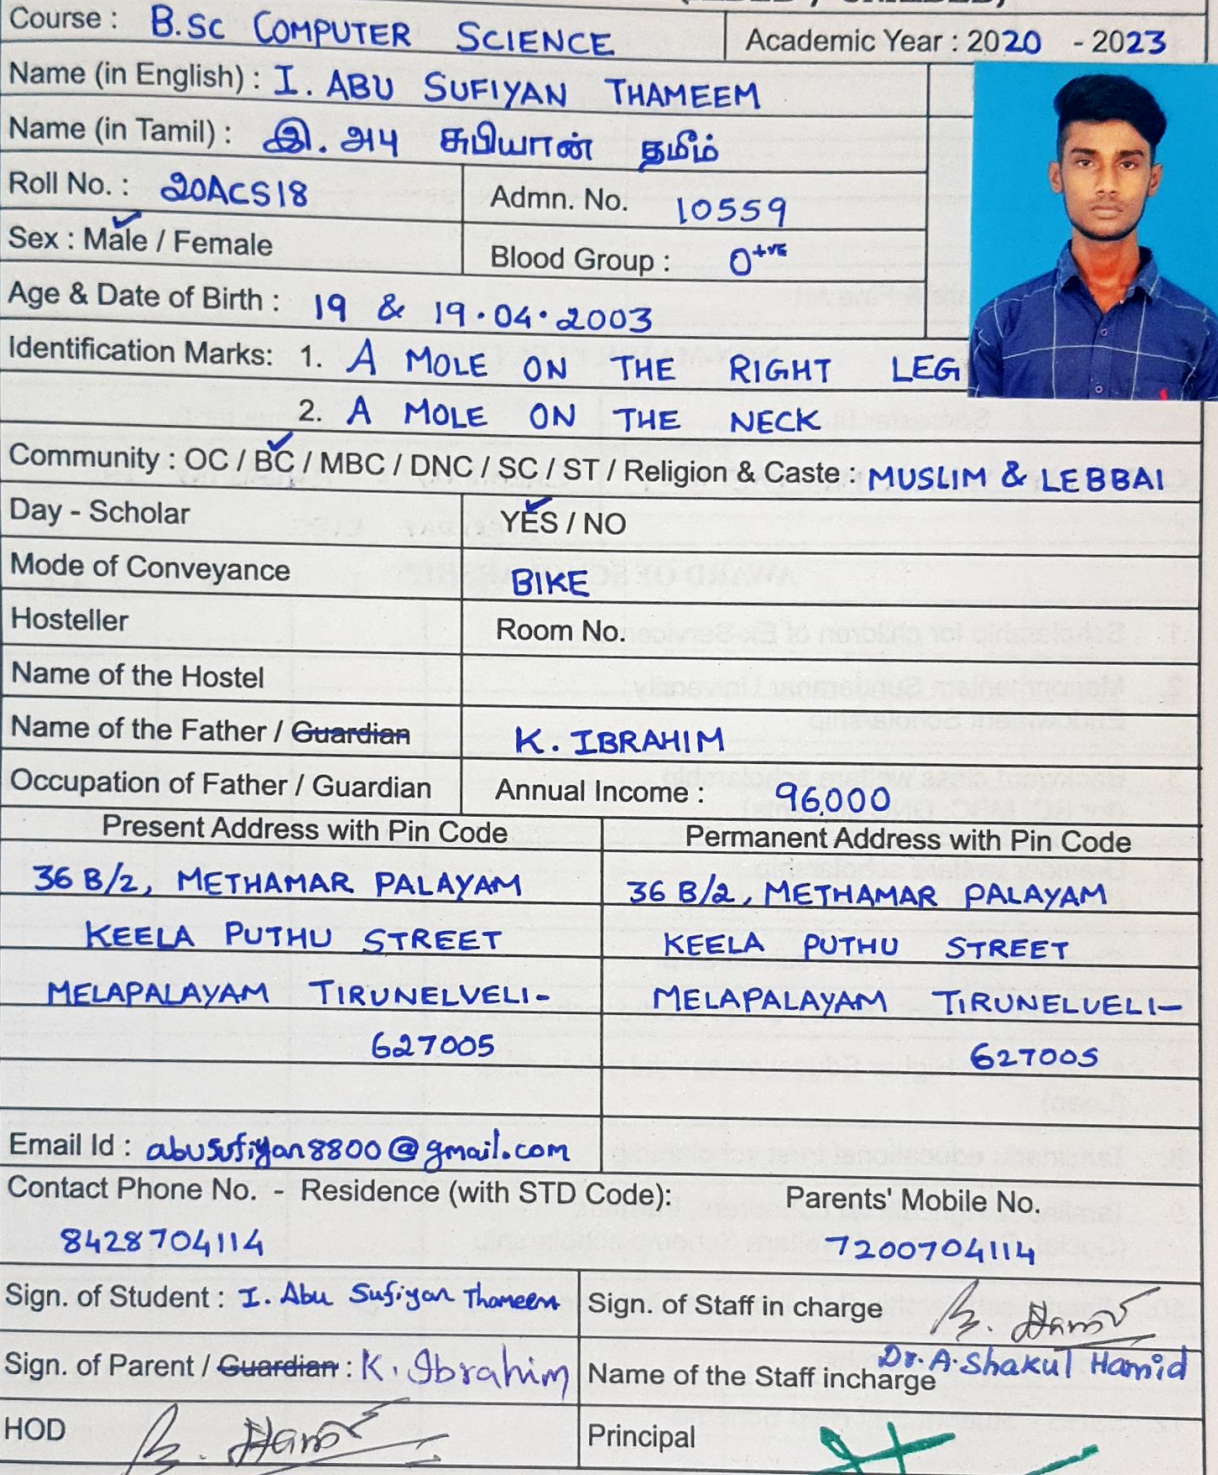 Course : B.Sc COMPUTER SCIENCE Academic Year : 2020 - 2023
Name (in English) : I. ABU SUFIYAN THAMEEM
Name (in Tamil) : இ. அபு சுபியான் தமீம்
Roll No. : 20ACS18 Admn. No. 10559
Sex : Male / Female Blood Group : O+ve
Age & Date of Birth : 19 & 19.04.2003
Identification Marks: 1. A MOLE ON THE RIGHT LEG
2. A MOLE ON THE NECK
Community : OC / BC / MBC / DNC / SC / ST / Religion & Caste : MUSLIM & LEBBAI
Day - Scholar YES / NO
Mode of Conveyance BIKE
Hosteller Room No.
Name of the Hostel
Name of the Father / Guardian K. IBRAHIM
Occupation of Father / Guardian Annual Income : 96,000
Present Address with Pin Code Permanent Address with Pin Code
36 B/2, METHAMAR PALAYAM 36 B/2, METHAMAR PALAYAM
KEELA PUTHU STREET KEELA PUTHU STREET
MELAPALAYAM TIRUNELVELI- MELAPALAYAM TIRUNELVELI-
627005 627005
Email Id : abusufiyan8800@gmail.com
Contact Phone No. - Residence (with STD Code): Parents' Mobile No.
8428704114 7200704114
Sign. of Student : I. Abu Sufiyan Thameem Sign. of Staff in charge
Sign. of Parent / Guardian : K. Ibrahim Name of the Staff incharge Dr. A. Shakul Hamid
HOD Principal